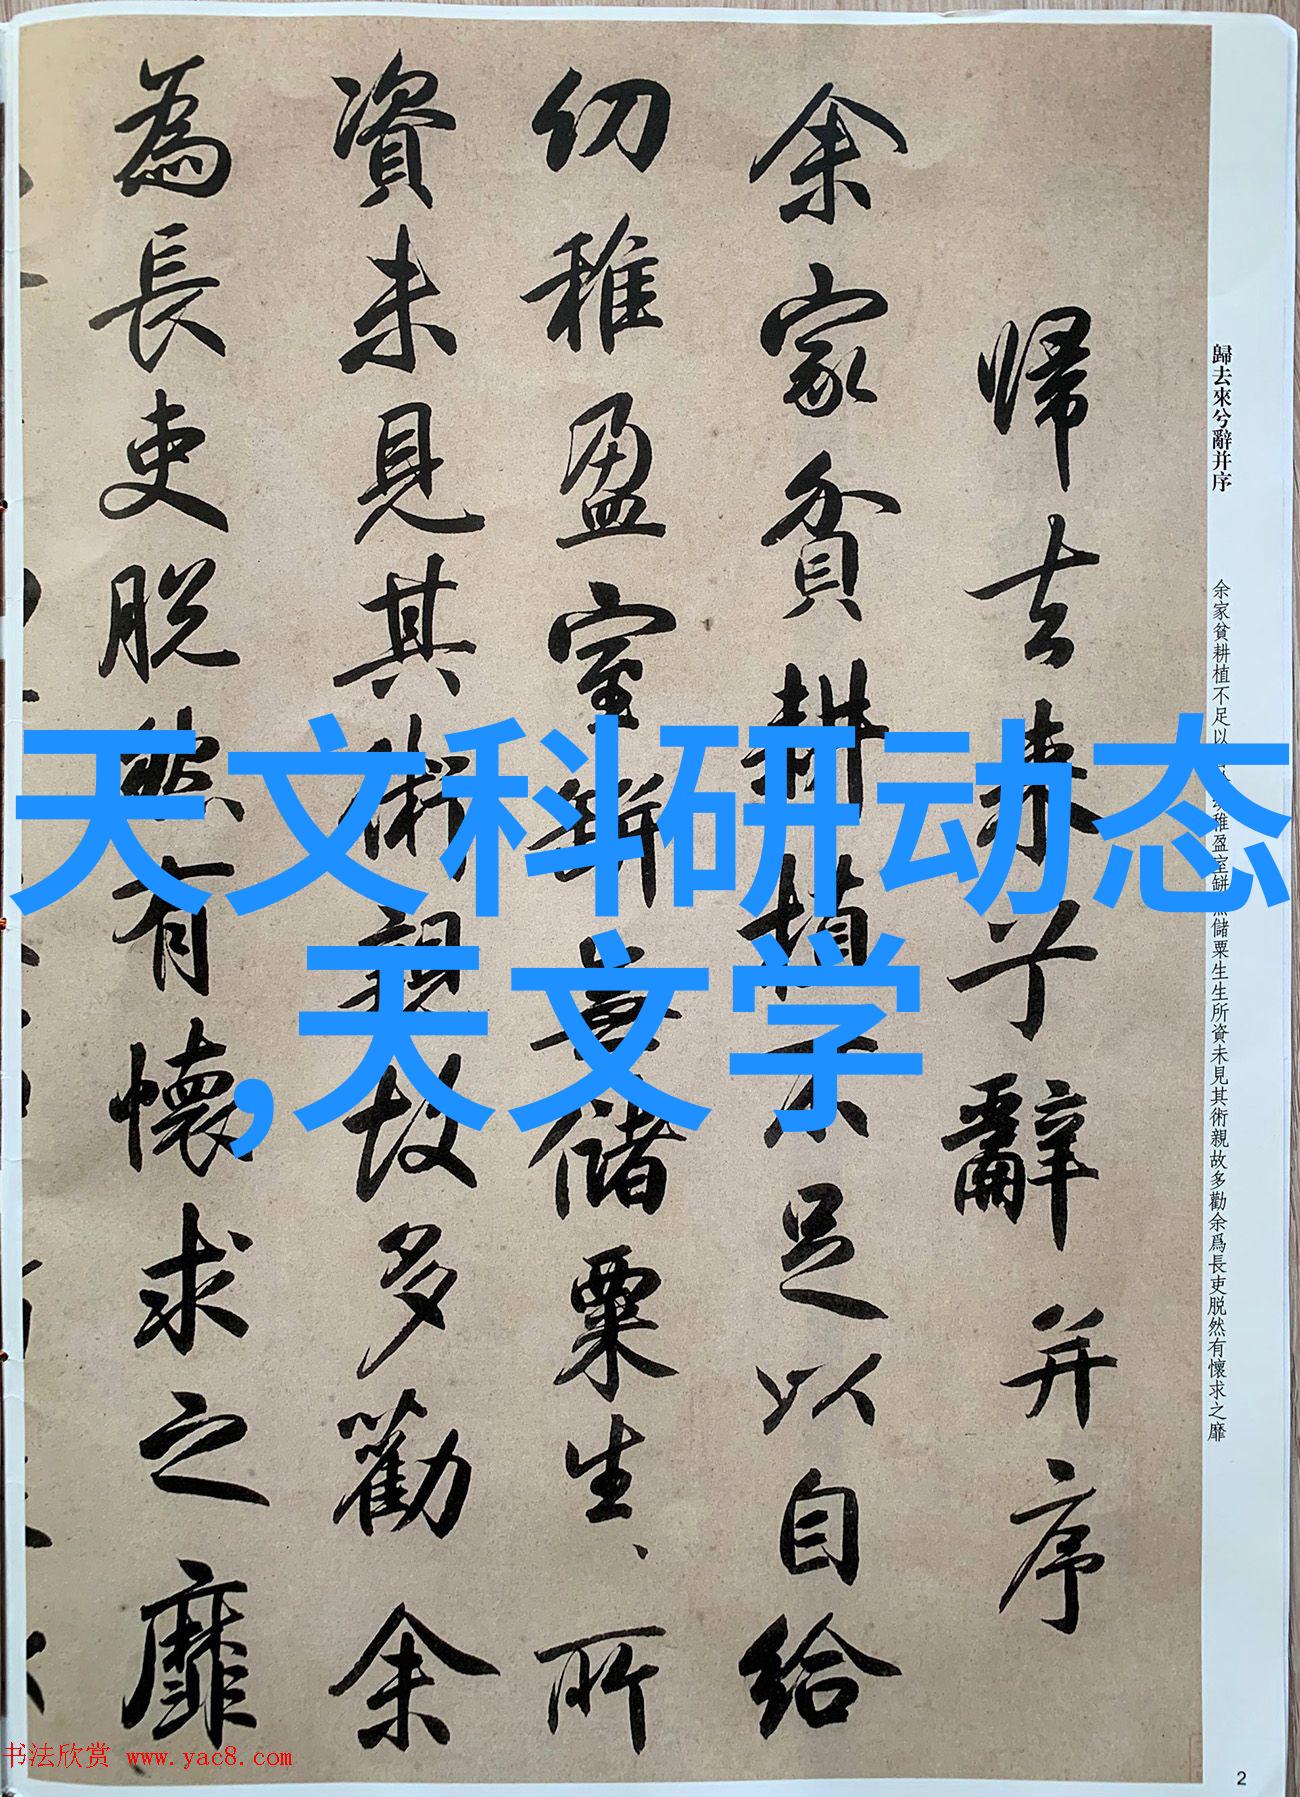 天文科研动态
,天文学
歸去來兮辭并序
余家貧耕植不足以稚盈室缾無儲粟生生所資未見其術親故多勸余爲長吏脱然有懷求之靡
帰去来兮辭并序
余家貧耕植不足以自給
幼稚盈室缾無儲粟生、所
資未見其術親故多勸余
為長吏脱然有懷求之靡
书法欣赏 www.yac8.com
2